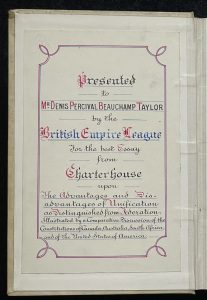 Presented
to
Mr Denis Percival Beauchamp Taylor
by the
British Empire League
For the best Essay
from
Charterhouse
upon
The Advantages and Dis-
advantages of Unification
as Distinguished from Federation
Illustrated by a Comparative Discussion of the
Constitutions of Canada, Australia, South Africa
and of the United States of America.